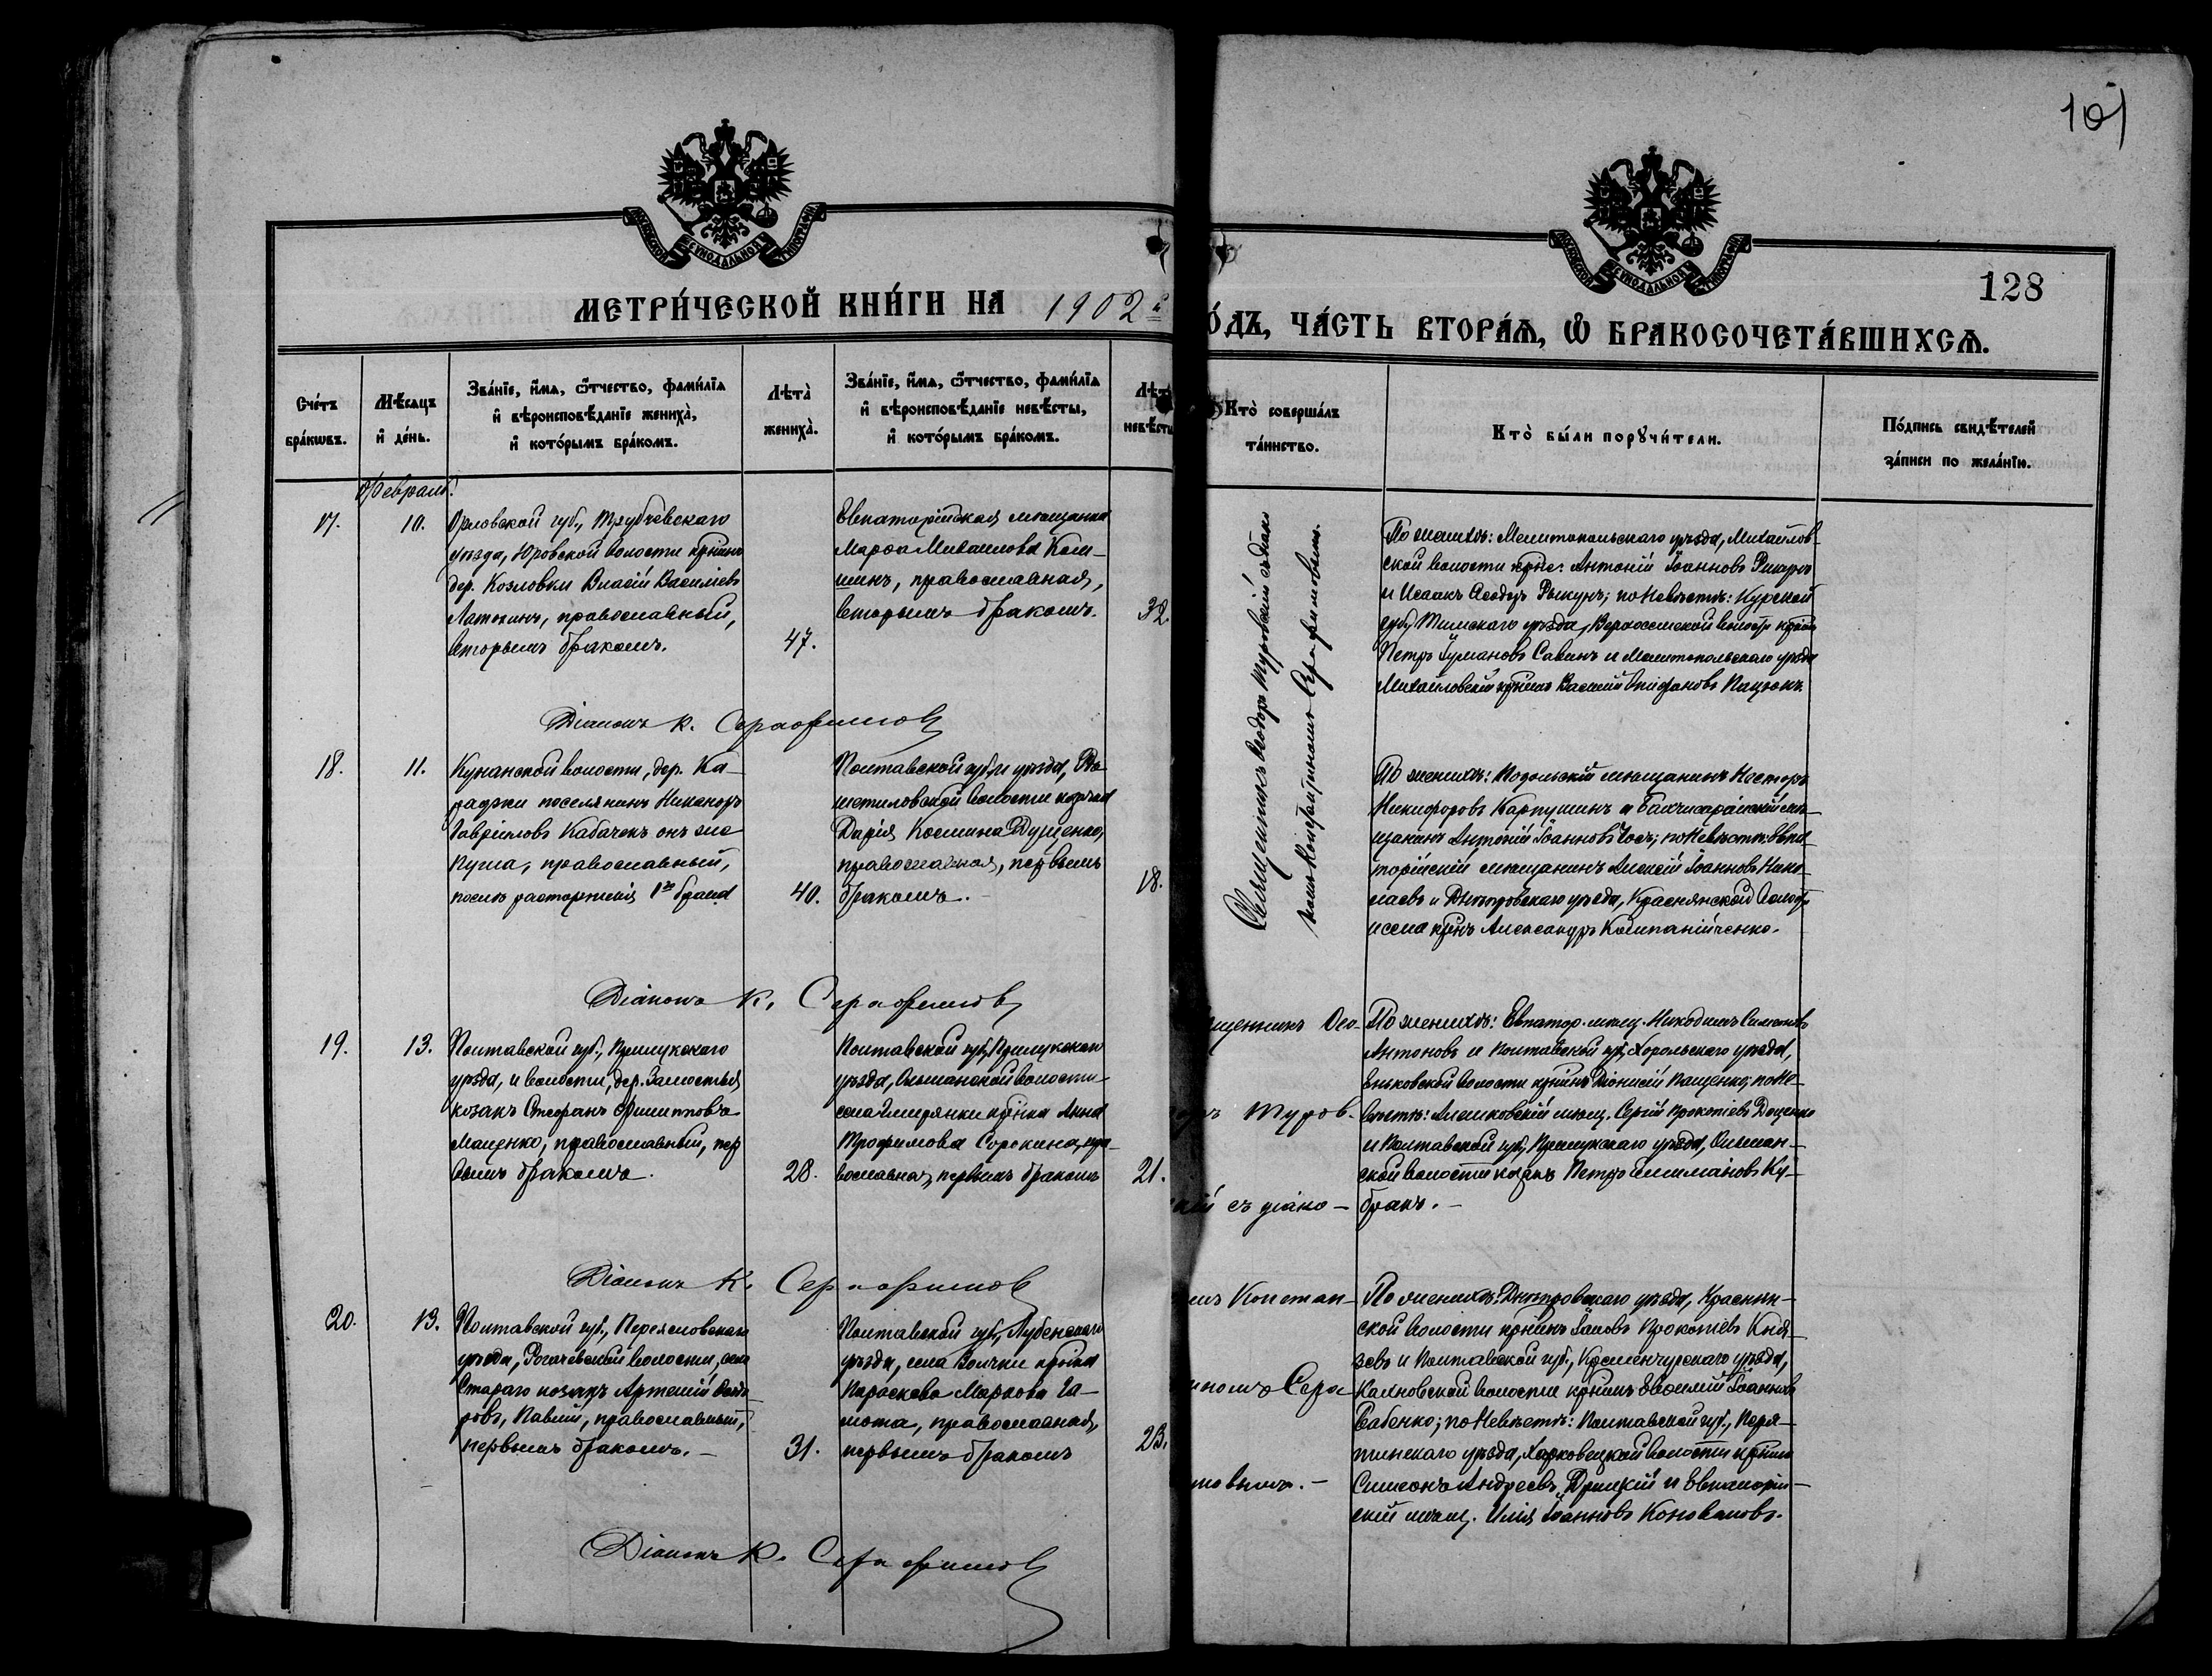 101
128
МЕТРИ́ЧЕСКОЙ КНИ́ГИ НА 1902 й
О́ДЪ, ЧА́СТЬ ВТОРА́Ѧ, Ѿ БРАКОСОЧЕТА́ВШИХСѦ.
Сче́тъ бра́кѡвъ.
Мѣ́сяцъ и де́нь.
Зва́нїе, и́мѧ, ѻ́тчество, фами́лїѧ
и҆ вѣроисповѣ́данїе жениха̀,
и҆ кото́рымъ бра́комъ.
Лѣта̀ жениха̀.
Зва́нїе, и́мѧ, ѻ́тчество, фами́лїѧ
и҆ вѣроисповѣ́данїе невѣ́сты,
и҆ кото́рымъ бра́комъ.
Лѣта невѣсты
Кто̀ соверша́лъ та́инство.
Кто̀ бы́ли порꙋчи́тели.
По́дпись свидѣ́телей за́писи по жела́нїю.
Февраль
17.
10.
Орловской губ., Трубчевскаго
уѣзда, Юровской волости крѣинъ
дер. Козловки Власій Василіевъ
Латохинъ, православный,
вторымъ бракомъ.
47.
Евпаторійская мѣщанка
Марѳа Михаилова Кош-
шинъ, православная,
вторымъ бракомъ.
32.
Священникъ Ѳеодоръ Туровскій съ діако
номъ Константиномъ Серафимовымъ.
По женихѣ: Мелитопольскаго уѣзда, Михайлов-
ской волости Антоній Іоанновъ
и Исаакъ Ѳеодор. Рыкунъ; по невѣстѣ: Курской
губ., Тимскаго уѣзда, волости
Петръ Савинъ и Мелитопольскаго уѣзда
Михайловскій Василій Епифановъ Пацюкъ.
Діаконъ К. Серафимовъ
18.
11.
Кунанской волости, дер. Ка-
раджи поселянинъ Никаноръ
Гавріиловъ Кабачекъ онъ же
Пугша, православный,
послѣ расторженія 1го брака
40.
Полтавской губ. и уѣзда, Рѣ-
шетиловской волости козачка
Дарія Космина Душенко,
православная, первымъ
бракомъ.
18.
По женихѣ: Подольскій мѣщанинъ Несторъ
Никифоровъ Карпушинъ и Бахчисарайскій мѣ-
щанинъ Антоній Іоанновъ по невѣстѣ: Евпа-
торійскій мѣщанинъ Алексій Іоанновъ Нико-
лаевъ и Днѣпровскаго уѣзда, Краснянской
села Александръ Компанійченко.
Діаконъ К. Серафимовъ
19.
13.
Полтавской губ., Прилукскаго
уѣзда, и волости, дер. Замостья
козакъ Стефанъ Филипповъ
Маценко, православный, пер
вымъ бракомъ.
28.
Полтавской губ., Прилукскаго
уѣзда, Ольшанской волости
села крѣнка Анна
Трофимова Сорокина, пра-
вославная, первымъ бракомъ
21.
щенникъ Ѳео-
ръ Туров.
кій съ діако-
По женихѣ: Евпатор. мѣщ. Никодимъ Симоновъ
Антоновъ и Полтавской губ., Хорольскаго уѣзда,
Еньковской волости крѣинъ Діонисій Пащенко; по не-
вѣстѣ: Алешковскій мѣщ. Сергій Прокопіевъ Доценко
и Полтавской губ., Прилукскаго уѣзда, Ольшан-
ской волости козакъ Петръ Ку-
бракъ.
Діаконъ К. Серафимовъ
20.
13.
Полтавской губ., Переяславскаго
уѣзда, Рогачевской волости, села
Стараго козакъ Артемій Ѳеодо
ровъ, Павлій, православный,
первымъ бракомъ.
31.
Полтавской губ., Лубенскаго
уѣзда, села Волчки крѣнка
Параскева Маркова Га-
мота, православная,
первымъ бракомъ
23.
мъ Констан-
иномъ Сера
мовымъ.
По женихѣ: Днѣпровскаго уѣзда, Краснян-
ской волости крѣинъ Іаковъ Прокопіевъ Кня-
зевъ и Полтавской губ., Кременчугскаго уѣзда,
волости крѣинъ Евѳимій Іоанновъ
Бабенко; по невѣстѣ: Полтавской губ., Пиря-
тинскаго уѣзда, Харковецкой волости крѣинъ
Симеонъ Андреевъ Дрицкій и Евпаторій-
скій мѣщ. Илія Іоанновъ Коноваловъ.
Діаконъ К. Серафимовъ